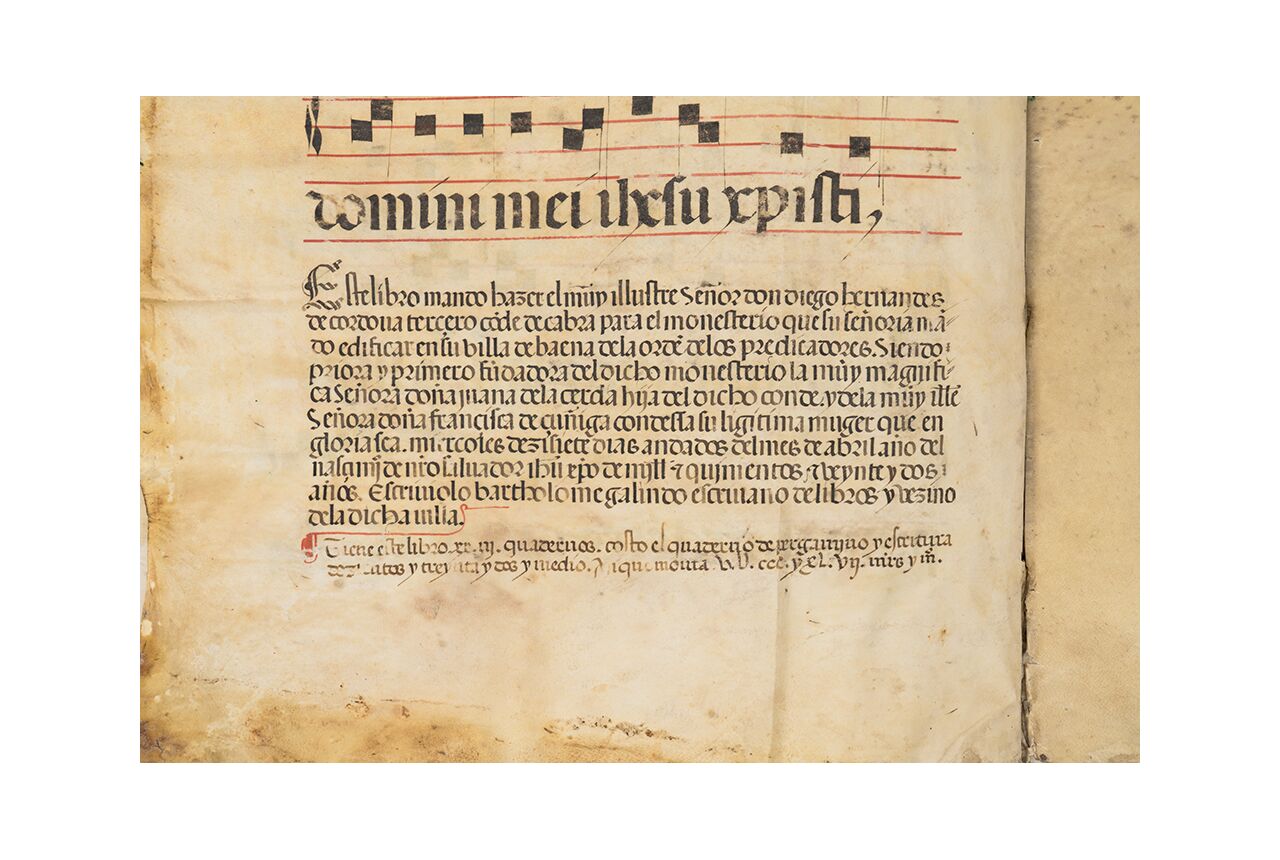 domini mei ihesu xpisti,
Este libro mando hazer el muy illustre Señor don diego hernandes
de cordoua tercero cōde de cabra para el monesterio que su señoria mā-
do edificar en su villa de baena de la ordē de los predicadores. Siendo
priora y primero fūdadora del dicho monesterio la muy magnifi-
ca Señora doña juana de la cerda hija del dicho conde. y de la muy illē
Señora doña francisca de çuñiga condessa su ligitima muger que en
gloria sea. miercoles dezisiete dias andados del mes de abril año del
nascimj̄ de nr̄o saluador ihū xp̄o de mjll ⁊ quinientos ⁊ veynte y dos
años. Escriuiolo bartholome galindo escriuano de libros y vezino
de la dicha villa.
¶ Tiene este libro xx.iij. quadernos. costo el quaderno de pergamino y escritura
y treynta y dos y medio. que monta .V. ccc. y xL. Vij. mr̄s y m̄.